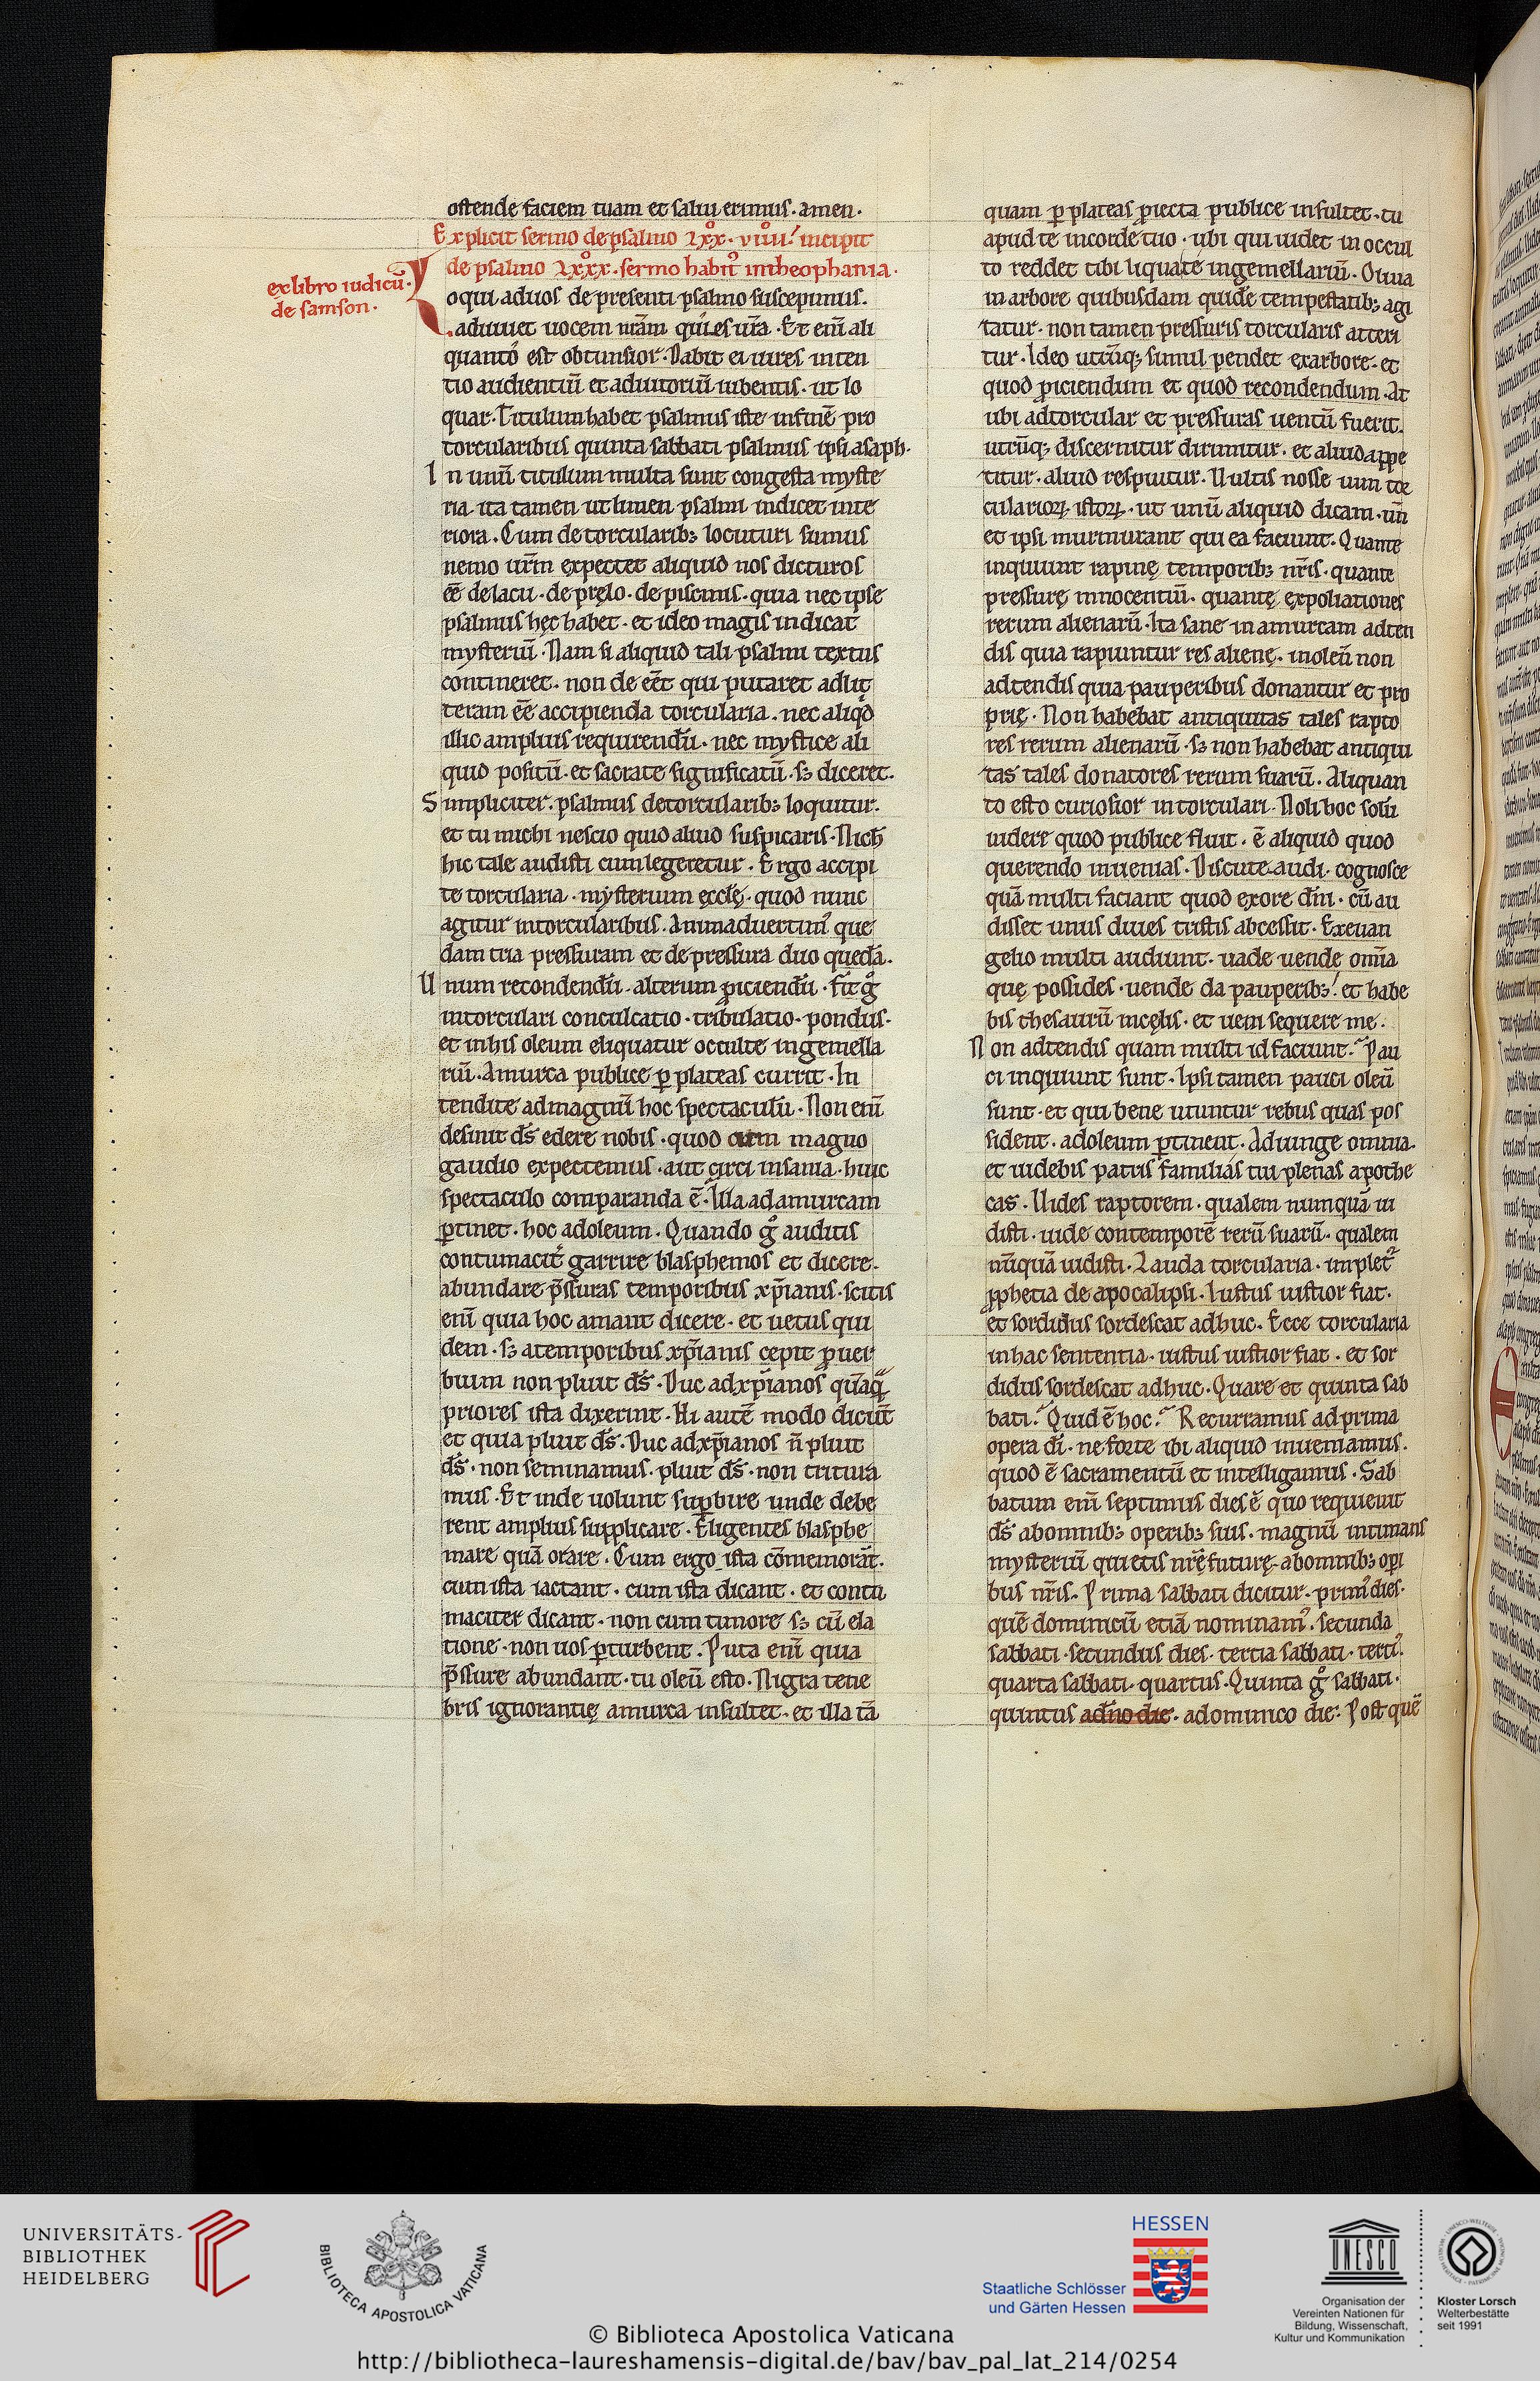 ostende faciem tuam et salui erimus. amen.
Explicit sermo de psalmo lxx̊x. viiii. incipit
de psalmo lxx̊xx. sermo habit᷒ intheophania.
exlibro iudicū.
de samson.
Loqui aduos de presenti psalmo suscepimus.
adiuuet uocem nr̄am qui es ur̄a. Et enī ali
quanto est obtunsior. Dabit ei uires inten
tio audientiū et adiutoriū iubentis. ut lo
quar. Titulum habet psalmus iste infinē pro
torcularibus quinta sabbati psalmus ipsi asaph.
In unū titulum multa sunt congesta myste
ria. ita tamen ut limen psalmi indicet inte
riora. Cum de torcularib; locuturi sumus
nemo ur̄m expectet aliquid nos dicturos
ēē de lacu. de pręlo. de piscinis. quia nec ipse
psalmus hęc habet. et ideo magis indicat
mysteriū. Nam si aliquid tali psalmi textus
contineret. non de eēt qui putaret adlit
teram ēē accipienda torcularia. nec aliqd
illic amplius requirendū. nec mystice ali
quid positū. et sacrate significatū. s; diceret.
Simpliciter psalmus detorcularib; loquitur.
et tu michi nescio quid aliud suspicaris. Nich̄
hic tale audisti cum legeretur. Ergo accipi
te torcularia. mysterium ęcclę. quod nunc
agitur intorcularibus. Animaduertim᷒ que
dam tria pressuram et de pressura duo quedā.
Unum recondendū. alterum ꝓiciendū. fit g̊
intorculari conculcatio. tribulatio. pondus.
et inhis oleum eliquatur occulte ingemella
riū. Amurca publice ꝑ plateas currit. In
tendite admagnū hoc spectaculū. Non enī
desinit ds̄ edere nobis. quod cum magno
gaudio expectemus. aut circi insania. huic
spectaculo comparanda ē. Illa ad amurcam
ꝑtinet. hoc adoleum. Quando g̊ auditis
contumacit̄ garrire blasphemos et dicere.
abundare p̄ssuras temporibus xp̄ianis. scitis
enī quia hoc amant dicere. et uetus qui
dem. s; atemporibus xp̄ianis cepit ꝓuer
bium non pluit ds̄. Duc adxp̄ianos quāq̄
priores ista dixerint. Hi autē modo dicūt
et quia pluit ds̄. Duc adxp̄ianos n̄ pluit
ds̄. non seminamus. pluit ds̄. non tritura
mus. Et inde uolunt suꝑbire unde debe
rent amplius supplicare. Eligentes blasphe
mare quā orare. Cum ergo ista cōmemorāt.
cum ista iactant. cum ista dicant. et contu
maciter dicant. non cum timore s; cū ela
tione. non uos ꝑturbent. Puta enī quia
p̄ssure abundant. tu oleū esto. Nigra tene
bris ignorantię amurca insultet. et illa tā
quam ꝑ plateas ꝓiecta publice insultet. tu
apud te incorde tuo. ubi qui uidet in occul
to reddet tibi liquate ingemellariū. Oliua
in arbore quibusdam quidē tempestatib; agi
tatur. non tamen pressuris torcularis atteri
tur. Ideo utrūq; simul pendet exarbore. et
quod ꝓiciendum et quod recondendum. At
ubi adtorcular et pressuras uentū fuerit.
utrūq; discernitur dirimitur. et aliud appe
titur. aliud respuitur. Uultis nosse uim tor
culariorꝝ istorꝝ. ut unū aliquid dicam. un̄
et ipsi murmurant qui ea faciunt. Quante
inquiunt rapinę temporib; nr̄is. quante
pressurę innocentiū. quantę expoliationes
rerum alienarū. Ita sane in amurcam adten
dis quia rapiuntur res alienę. inoleū non
adtendis quia pauperibus donantur et pro
prię. Non habebat antiquitas tales rapto
res rerum alienarū. s; non habebat antiqui
tas tales donatores rerum suarū. Aliquan
to esto curiosior intorculari. Noli hoc solū
uidere quod publice fluit. ē aliquid quod
querendo inuenias. Discute. audi. cognosce
quā multi faciant quod exore dn̄i. cū au
disset unus diues tristis abcessit. Exeuan
gelio multi audiunt. uade uende omīa
quę possides. uende da pauperib;. et habe
bis thesaurū incęlis. et ueni sequere me.
Non adtendis quam multi id faciunt. Pau
ci inquiunt sunt. Ipsi tamen pauci oleū
sunt. et qui bene utuntur rebus quas pos
sident. adoleum ꝑtinent. Adiunge omnia.
et uidebis patris familias tui plenas apothe
cas. Uides raptorem. qualem numquā ui
disti. uide contemporē rerū suarū. qualem
nūquā uidisti. Lauda torcularia. implet᷑
ꝓphetia de apocalipsi. Iustus iustior fiat.
et sordidus sordescat adhuc. Ecce torcularia
inhac sententia. iustus iustior fiat. et sor
didus sordescat adhuc. Quare et quinta sab
bati. Quid ē hoc. Recurramus ad prima
opera dī. ne forte ibi aliquid inueniamus.
quod ē sacramentū et intelligamus. Sab
batum enī septimus dies ē quo requieuit
ds̄ abomnib; operib; suis. magnū intimans
mysteriū quietis nr̄ę futurę. abomnib; opi
bus nr̄is. Prima sabbati dicitur. prim᷒ dies.
quē dominicū etiā nominam᷒. secunda
sabbati. secundus dies. tertia sabbati. terti᷒.
quarta sabbati. quartus. Quinta g̊ sabbati.
quintus adn̄o die. adominico die. Post quē
UNIVERSITÄTS-
BIBLIOTHEK
HEIDELBERG
BIBLIOTECA APOSTOLICA VATICANA
HESSEN
Staatliche Schlösser
und Gärten Hessen
UNESCO
Organisation der
Vereinten Nationen für
Bildung, Wissenschaft,
Kultur und Kommunikation
Kloster Lorsch
Welterbestätte
seit 1991
© Biblioteca Apostolica Vaticana
http://bibliotheca-laureshamensis-digital.de/bav/bav_pal_lat_214/0254